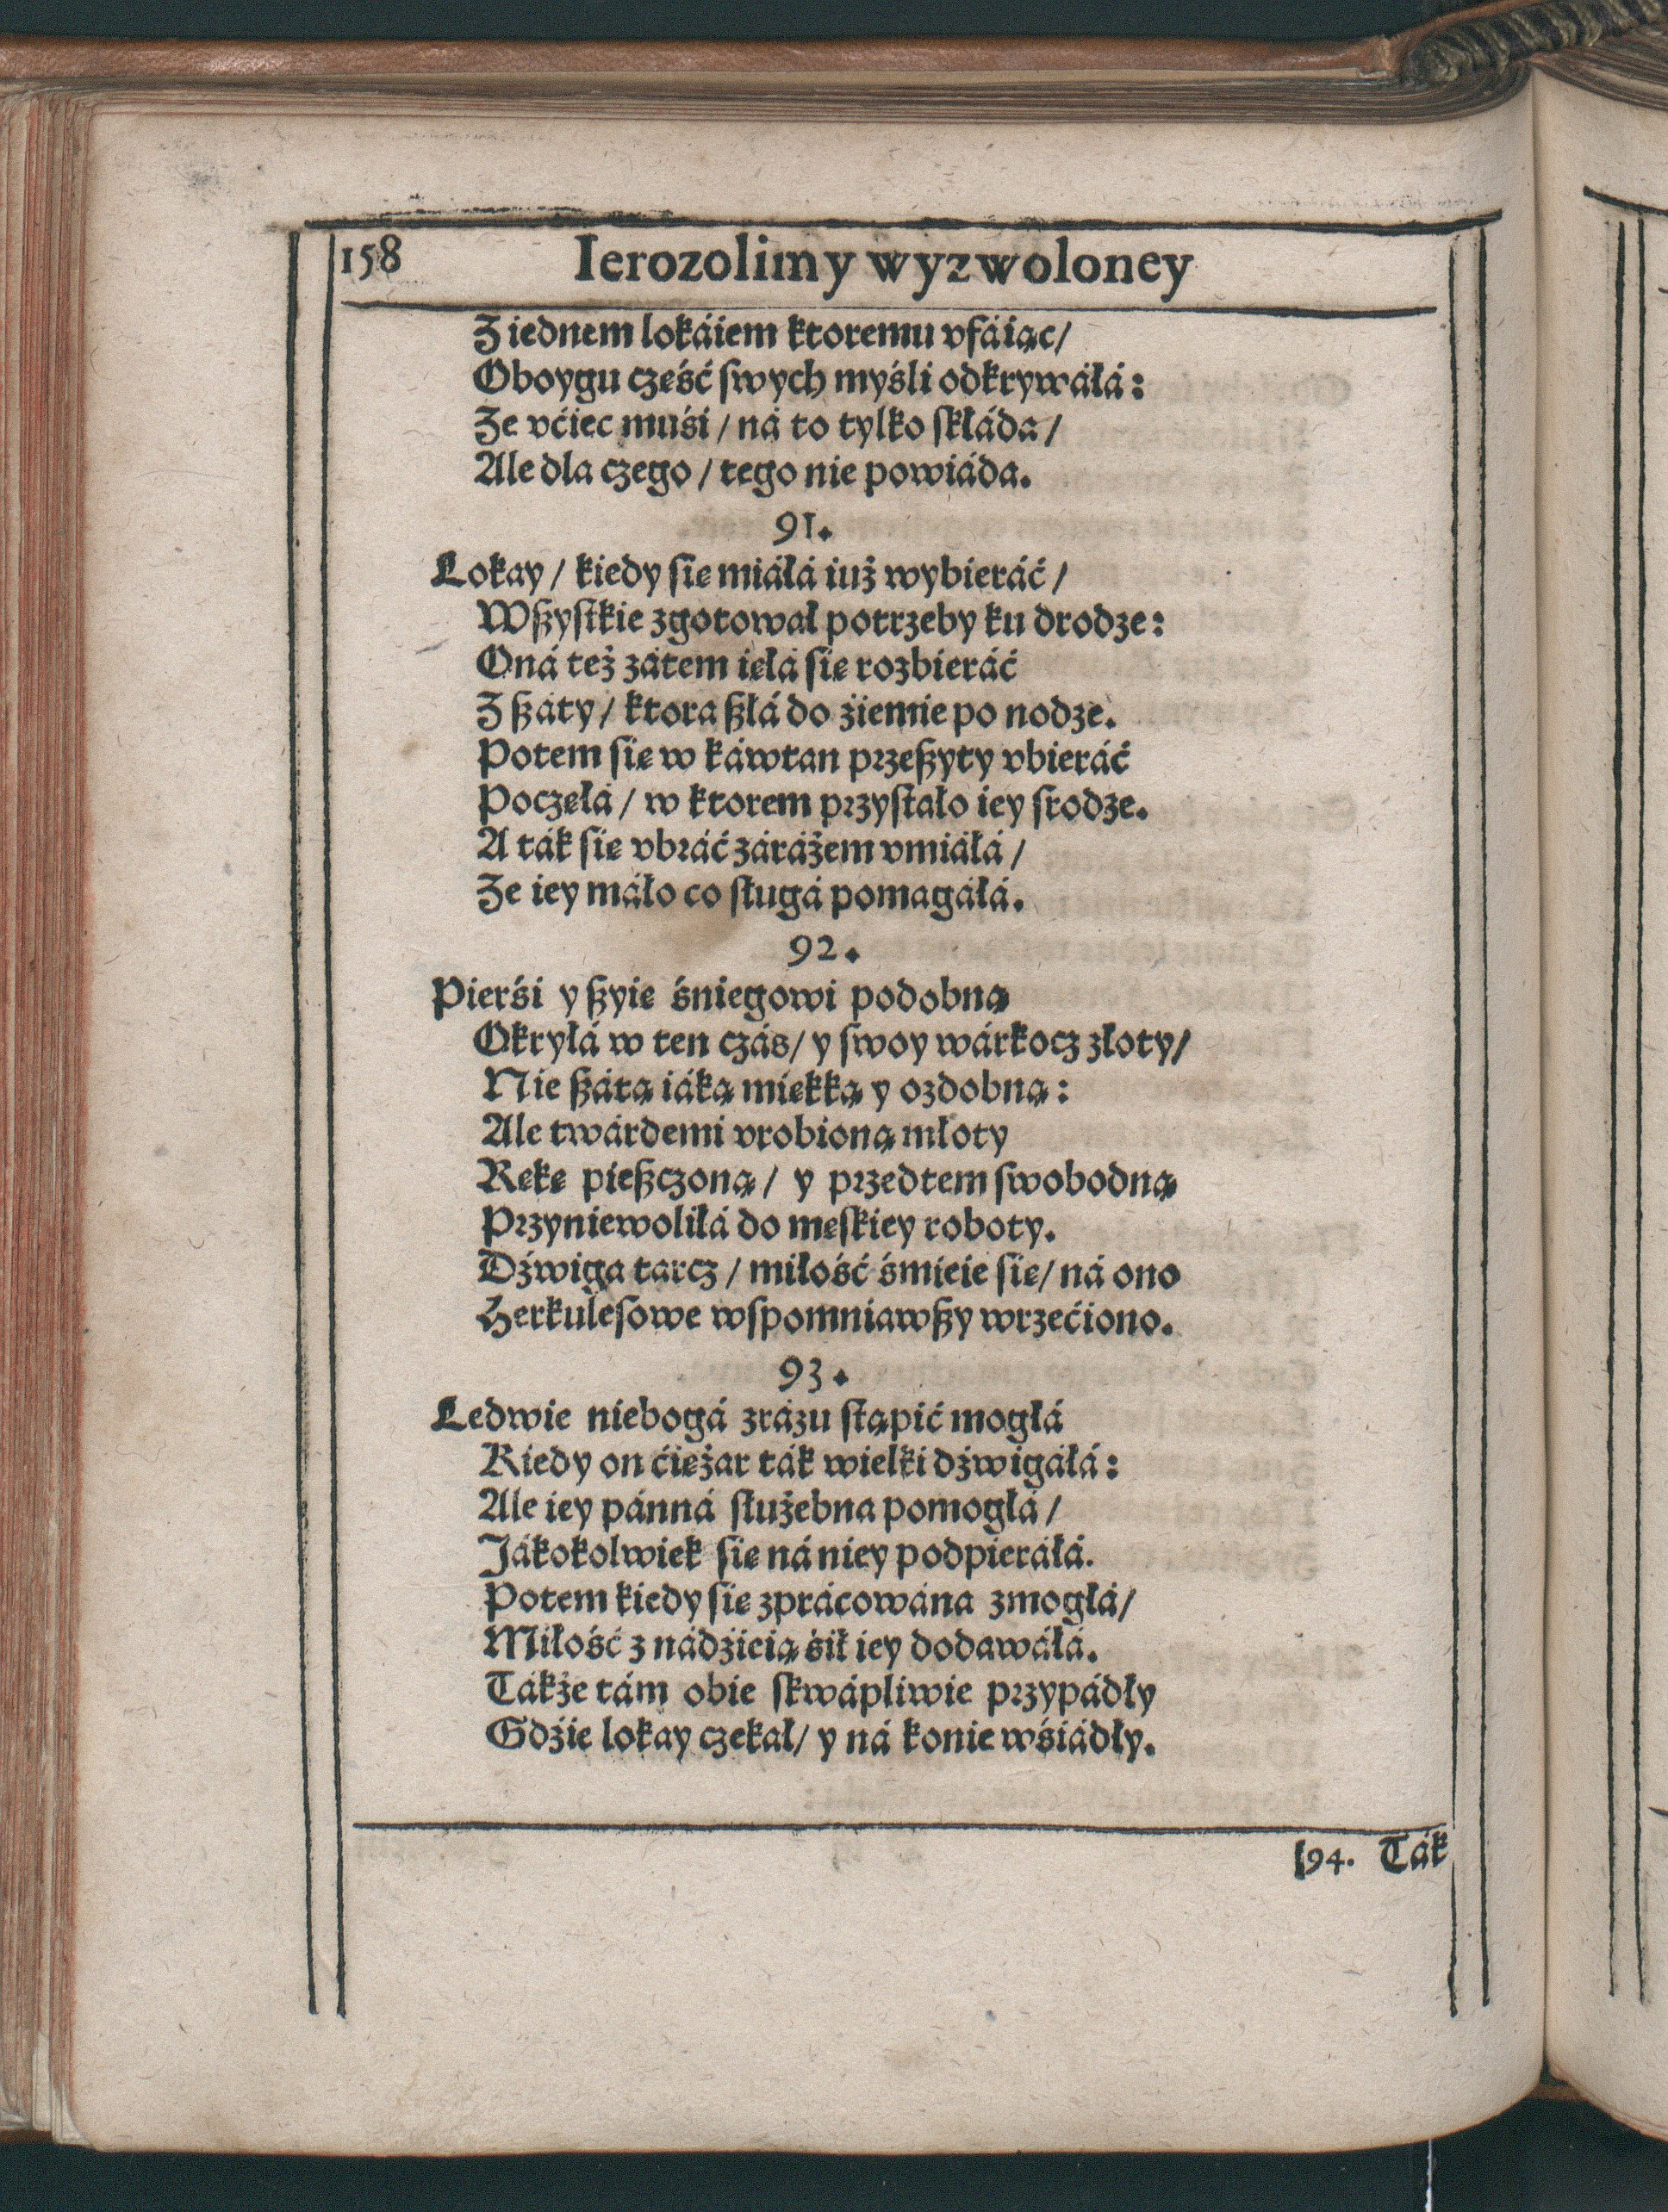 158 Ierozolimy wyzwoloney
Z iednem lokáiem ktoremu vfáiąc/
Oboygu część ſwych myśli odkrywáłá:
Że vćiec muśi / ná to tylko ſkłáda/
Ale dla czego / tego nie powiáda.
91.
Lokay / kiedy ſię miáłá iuż wybieráć /
Wßyſtkie zgotował potrzeby ku drodze:
Oná też zátem ięłá ſię rozbieráć
Z ßáty / ktora ßłá do źiemie po nodze.
Potem ſię w káwtan przeßyty vbieráć
Poczęłá / w ktorem przyſtało iey ſrodze.
A ták ſię vbráć zárázem vmiáłá /
Że iey máło co ſługá pomagáłá.
92.
Pierśi y ßyię śniegowi podobną
Okryłá w ten czás/ y ſwoy wárkocz złoty/
Nie ßátą iáką miękką y ozdobną:
Ale twárdemi vrobioną młoty
Rękę pießczoną / y przedtem ſwobodną
Przyniewoliłá do męſkiey roboty.
Dźwiga tarcz / miłość śmieie ſię/ ná ono
Herkuleſowe wſpomniawßy wrzećiono.
93.
Ledwie niebogá zrázu ſtąpić mogłá
Kiedy on ćiężar ták wielki dźwigáłá:
Ale iey pánná ſłużebna pomogłá /
Jákokolwiek ſię ná niey podpieráłá.
Potem kiedy ſię zprácowána zmogłá/
Miłość z nádźieią śił iey dodawáłá.
Tákże tám obie ſkwápliwie przypádły
Gdźie lokay czekał/ y ná konie wśiádły.
[94. Ták